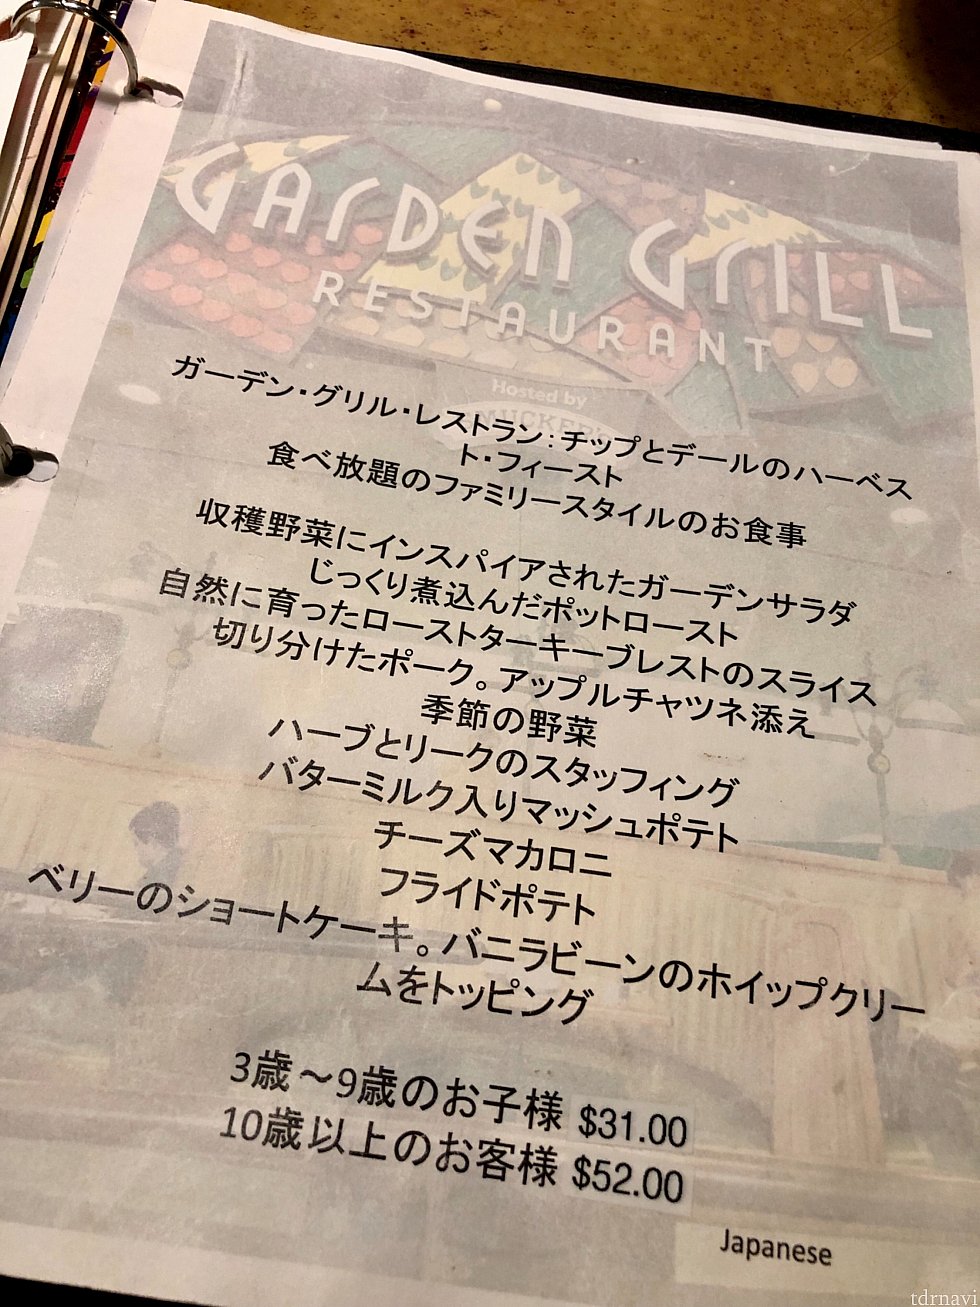 GARDEN GRILL
RESTAURANT
Hosted by
SMUCKER'S
ガーデン・グリル・レストラン：チップとデールのハーベス
ト・フィースト
食べ放題のファミリースタイルのお食事
収穫野菜にインスパイアされたガーデンサラダ
じっくり煮込んだポットロースト
自然に育ったローストターキーブレストのスライス
切り分けたポーク。アップルチャツネ添え
季節の野菜
ハーブとリークのスタッフィング
バターミルク入りマッシュポテト
チーズマカロニ
フライドポテト
ベリーのショートケーキ。バニラビーンのホイップクリー
ムをトッピング
3歳～9歳のお子様 $31.00
10歳以上のお客様 $52.00
Japanese
tdrnavi